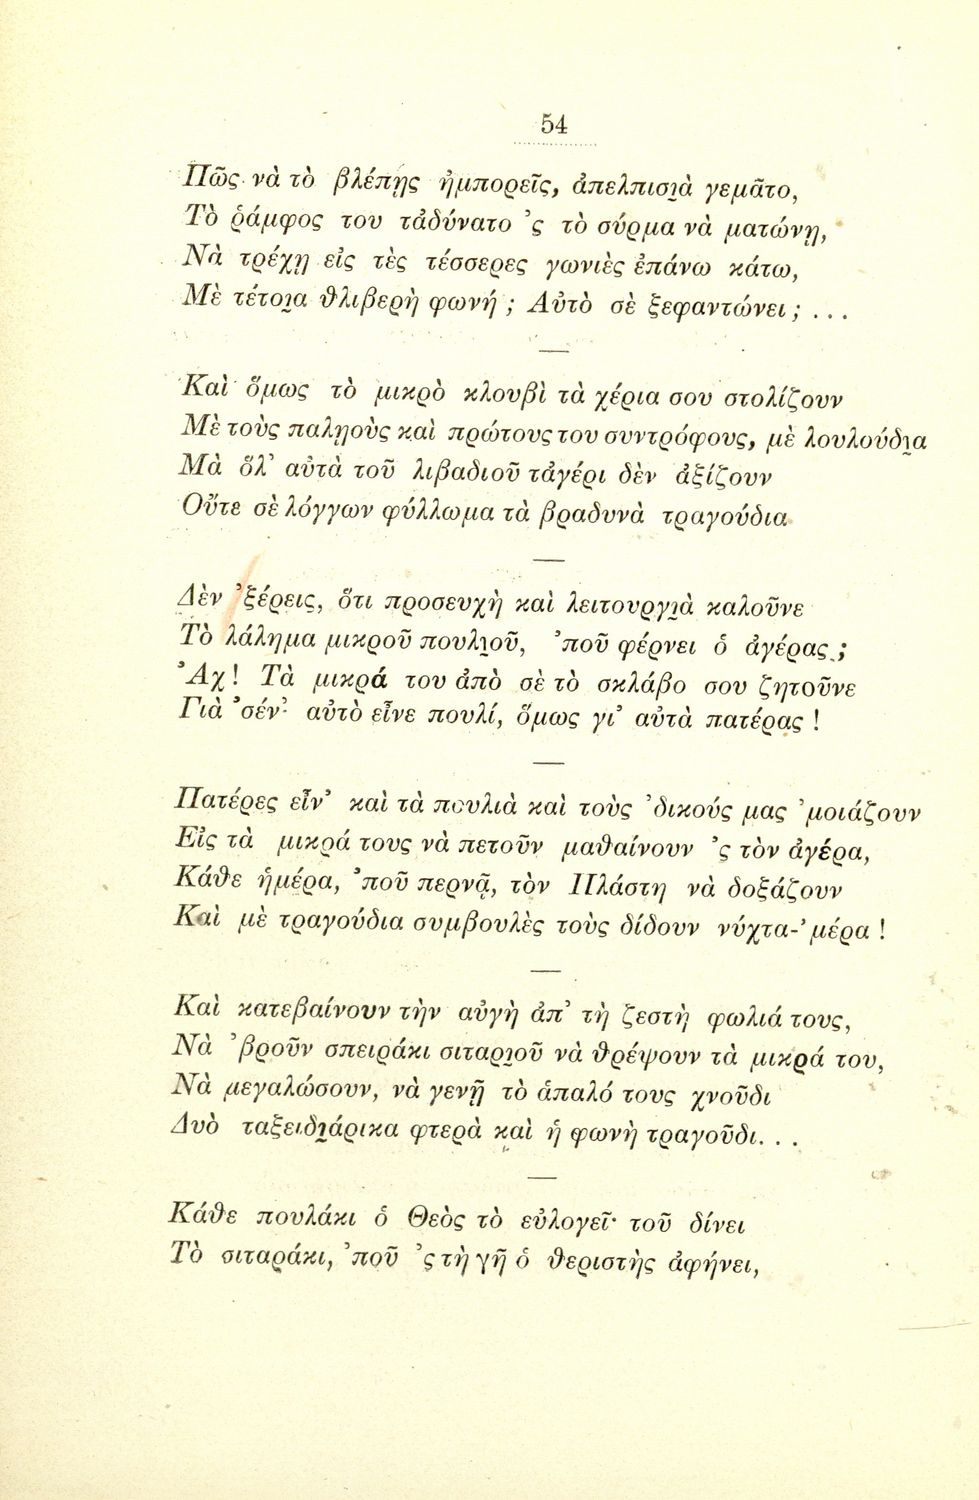 54
Πῶς νὰ τὸ βλέπῃς ἠμπορεῖς, ἀπελπισι̯ὰ γεμᾶτο,
Τὸ ῥάμφος του τἀδύνατο ’ς τὸ σύρμα νὰ ματώνῃ,
Νὰ τρέχῃ εἰς τὲς τέσσερες γωνιὲς ἐπάνω κάτω,
Μὲ τέτοι̯α θλιβερὴ φωνή ; Αὐτὸ σὲ ξεφαντώνει ; ...
Καὶ ὅμως τὸ μικρὸ κλουβὶ τὰ χέρια σου στολίζουν
Μὲ τοὺς παλῃοὺς καὶ πρώτους του συντρόφους, μὲ λουλούδι̯α
Μὰ ὅλ’ αὐτὰ τοῦ λιβαδιοῦ τἀγέρι δὲν ἀξίζουν
Οὔτε σὲ λόγγων φύλλωμα τὰ βραδυνὰ τραγούδια
Δὲν ’ξέρεις, ὅτι προσευχὴ καὶ λειτουργι̯ὰ καλοῦνε
Τὸ λάλημα μικροῦ πουλι̯οῦ, ’ποῦ φέρνει ὁ ἀγέρας ;
Ἄχ! Τὰ μικρά του ἀπὸ σὲ τὸ σκλάβο σου ζητοῦνε
Γιὰ ’σέν’ αὐτὸ εἶνε πουλί, ὅμως γι’ αὐτὰ πατέρας !
Πατέρες εἶν’ καὶ τὰ πουλιὰ καὶ τοὺς ’δικούς μας ’μοιάζουν
Εἰς τὰ μικρά τους νὰ πετοῦν μαθαίνουν ’ς τὸν ἀγέρα,
Κάθε ἡμέρα, ’ποῦ περνᾷ, τὸν Πλάστη νὰ δοξάζουν
Καὶ μὲ τραγούδια συμβουλὲς τοὺς δίδουν νύχτα-’μέρα !
Καὶ κατεβαίνουν τὴν αὐγὴ ἀπ’ τὴ ζεστὴ φωλιά τους,
Νὰ ’βροῦν σπειράκι σιταρι̯οῦ νὰ θρέψουν τὰ μικρά του,
Νὰ μεγαλώσουν, νὰ γενῇ τὸ ἁπαλό τους χνοῦδι
Δυὸ ταξειδι̯άρικα φτερὰ καὶ ἡ φωνὴ τραγοῦδι. . .
Κάθε πουλάκι ὁ Θεὸς τὸ εὐλογεῖ· τοῦ δίνει
Τὸ σιταράκι, ’ποῦ ’ς τὴ γῆ ὁ θεριστὴς ἀφήνει,